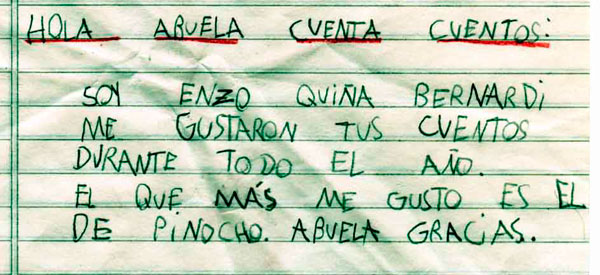 HOLA ABUELA CUENTA CUENTOS:
SOY ENZO QUIÑA BERNARDi
ME GUSTARON TUS CUENTOS
DURANTE TODO EL AÑO.
EL QUE MÁS ME GUSTO ES EL
DE PiNOCHO. ABUELA GRACiAS.